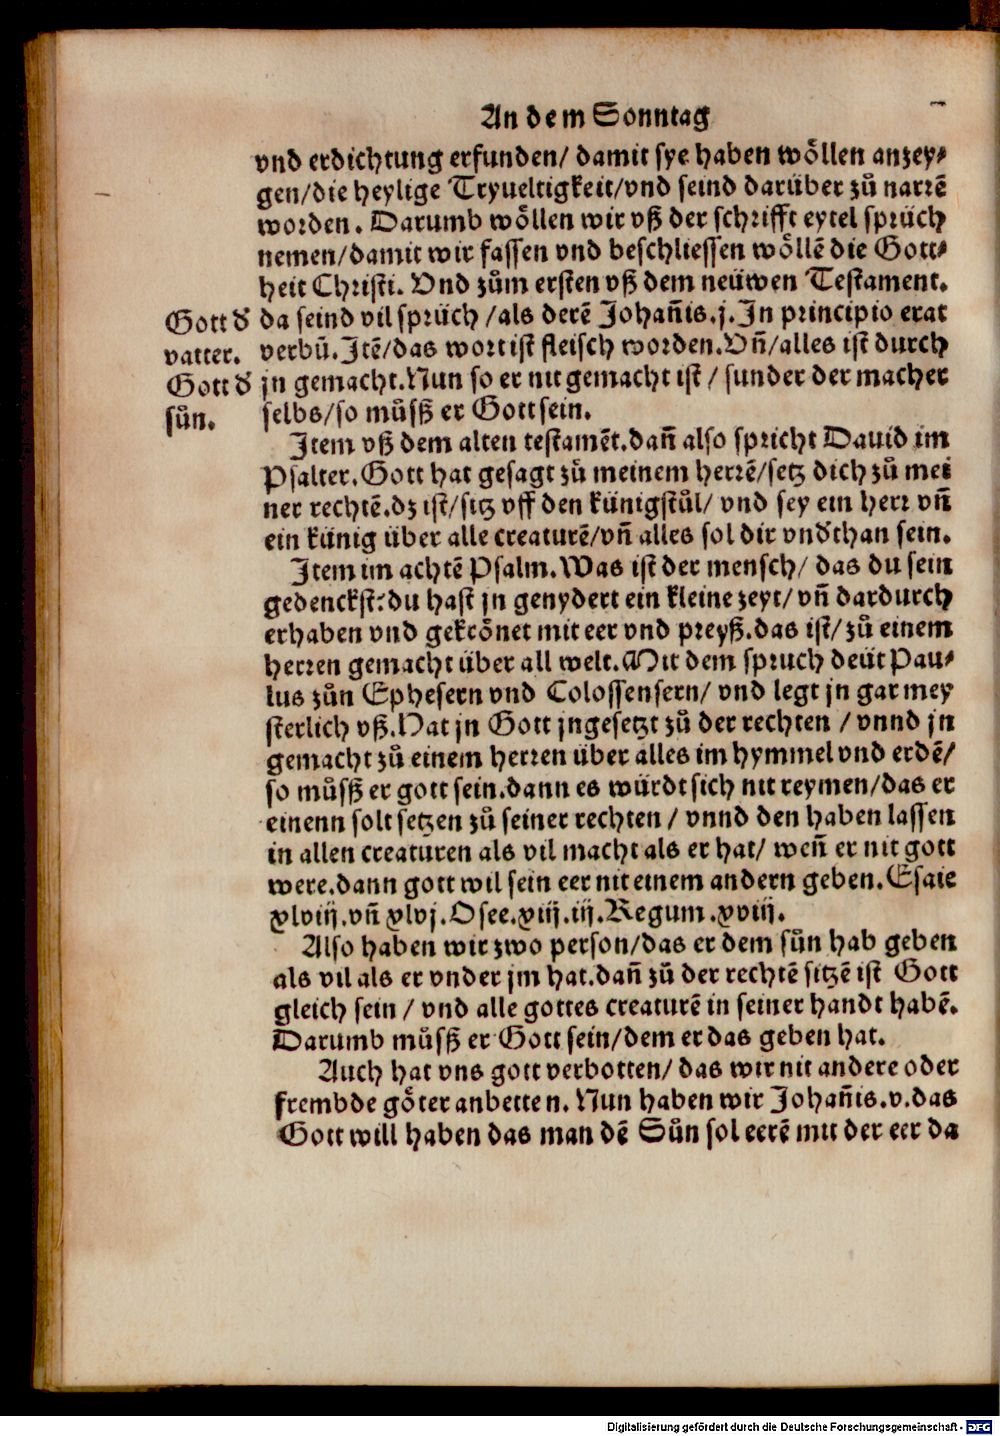 An dem Sonntag
vnd erdichtung erfunden/ damit sye haben woͤllen anzey⸗
gen/die heylige Tryueltigkeit/vnd seind darüber zuͦ narrē
worden. Darumb woͤllen wir vß der schrifft eytel sprüch
nemen/damit wir fassen vnd beschliessen woͤllē die Gott⸗
heit Christi. Vnd zuͦm ersten vß dem neüwen Testament.
da seind vil sprüch /als derē Johañis.j. In principio erat
verbū. Itē/das wort ist fleisch worden. Vñ/alles ist durch
jn gemacht. Nun so er nit gemacht ist / sunder der macher
selbs/so muͦſß er Gott sein.
Gott dˀ
vatter.
Gott dˀ
suͦn.
Item vß dem alten testamēt. dañ also spricht Dauid im
Psalter. Gott hat gesagt zuͦ meinem herrē/setz dich zuͦ mei
ner rechtē. dz ist/sitz vff den künigstuͦl/ vnd sey ein herr vñ
ein künig über alle creaturē/vñ alles sol dir vndˀthan sein.
Item im achtē Psalm. Was ist der mensch/ das du sein
gedenckst: du hast jn genydert ein kleine zeyt/ vñ dardurch
erhaben vnd gekroͤnet mit eer vnd preyß. das ist/ zuͦ einem
herren gemacht über all welt. Mit dem spruch deüt Pau⸗
lus zuͦn Ephesern vnd Colossensern/ vnd legt jn gar mey
sterlich vß. Hat jn Gott jngesetzt zuͦ der rechten / vnnd jn
gemacht zuͦ einem herren über alles im hymmel vnd erdē/
so muͦſß er gott sein. dann es würdt sich nit reymen/das er
einenn solt setzen zuͦ seiner rechten / vnnd den haben lassen
in allen creaturen als vil macht als er hat/ weñ er nit gott
were. dann gott wil sein eer nit einem andern geben. Esaie
xlviij. vñ xlvj. Osee. xiij. iij. Regum. xviij.
Also haben wir zwo person/das er dem suͦn hab geben
als vil als er vnder jm hat. dañ zuͦ der rechtē sitzē ist Gott
gleich sein / vnd alle gottes creaturē in seiner handt habē.
Darumb muͦſß er Gott sein/dem er das geben hat.
Auch hat vns gott verbotten/ das wir nit andere oder
frembde goͤter anbetten. Nun haben wir Johañis. v. das
Gott will haben das man dē Suͦn sol eerē mit der eer da
Digitalisierung gefördert durch die Deutsche Forschungsgemeinschaft - DFG